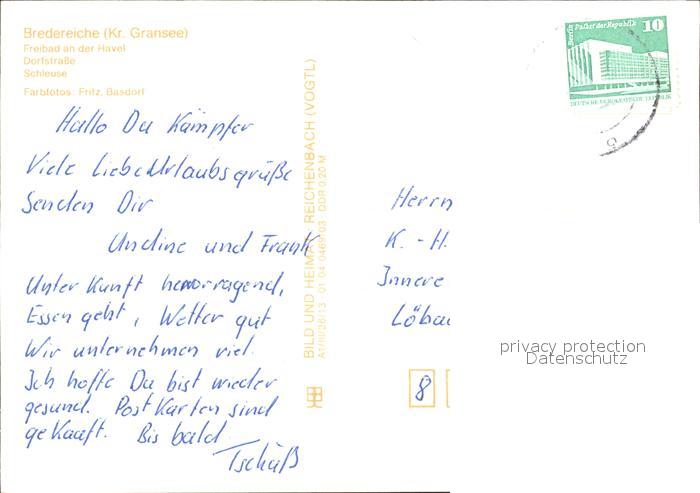 Bredereiche (Kr. Gransee)
Freibad an der Havel
Dorfstraße
Schleuse
Farbfotos: Fritz, Basdorf
Hallo Du Kämpfer
Viele Liebe Urlaubsgrüße
Senden Dir
Undine und Frank
Unter Kunft hervorragend,
Essen geht, Wetter gut
Wir unternehmen viel.
Ich hoffe Du bist wieder
gesund. Post Karten sind
gekauft. Bis bald
Tschüß
BILD UND HEIMAT REICHENBACH (VOGTL)
DDR 0,20 M
Berlin Palast der Republik
10
DEUTSCHE DEMOKRATISCHE REPUBLIK
Herrn
K. - H.
Innere
Löbau
8
privacy protection
Datenschutz